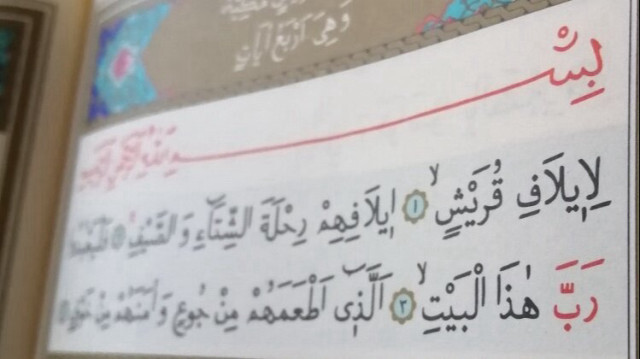 وَهِىَ اَرْبَعُ اٰيَاتٍ
بِسْمِ اللّٰهِ الرَّحْمٰنِ الرَّحٖيمِ
لِاٖيلَافِ قُرَيْشٍۙ ﴿١﴾ اٖيلَافِهِمْ رِحْلَةَ الشِّتَٓاءِ وَالصَّيْفِۚ ﴿٢﴾ فَلْيَعْبُدُوا
رَبَّ هٰذَا الْبَيْتِۙ ﴿٣﴾ اَلَّذٖٓى اَطْعَمَهُمْ مِنْ جُوعٍ وَاٰمَنَهُمْ مِنْ خَوْفٍ